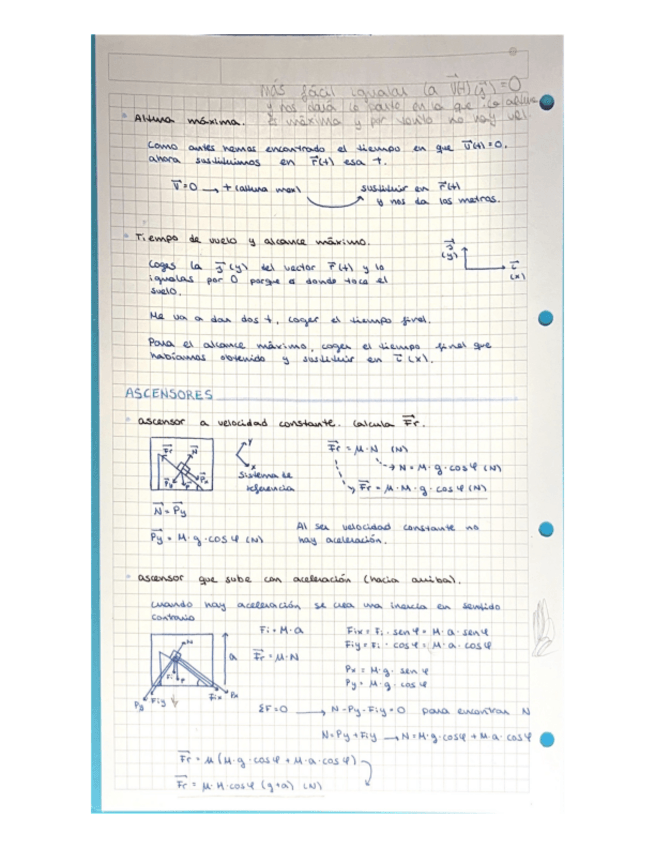 más fácil igualar la v(t)(j)=0
y nos dará la parte en la que la altura
es máxima y por tanto no hay vel.
Altura máxima.
Como antes hemos encontrado el tiempo en que v(t)=0,
ahora sustituimos en r(t) esa t.
V=0 → t (altura max)
sustituir en r(t)
y nos da los metros.
Tiempo de vuelo y alcance máximo.
Coges la j (y) del vector r(t) y lo
igualas por 0 porque es donde toca el
suelo.
Me va a dar dos t, coger el tiempo final.
Para el alcance máximo, coger el tiempo final que
habíamos obtenido y sustituir en i (x).
j
(y)
i
(x)
ASCENSORES
ascensor a velocidad constante. Calcula Fr.
Fr
N
Py
P
Px
y
x
Sistema de
referencia
Fr = μ·N (N)
→ N = M·g·cosφ (N)
Fr = μ·M·g·cosφ (N)
N = Py
Py = M·g·cosφ (N)
Al ser velocidad constante no
hay aceleración.
ascensor que sube con aceleración (hacia arriba).
Cuando hay aceleración se crea una inercia en sentido
contrario
N
Fi
P
a
Py
Fiy
Fix
Px
Fi = M·a
Fr = μ·N
Fix = Fi·senφ = M·a·senφ
Fiy = Fi·cosφ = M·a·cosφ
Px = M·g·senφ
Py = M·g·cosφ
ΣF=0 → N-Py-Fiy=0 para encontrar N
N=Py+Fiy → N=M·g·cosφ+M·a·cosφ
Fr = μ(M·g·cosφ + M·a·cosφ)
Fr = μ·M·cosφ (g+a) (N)